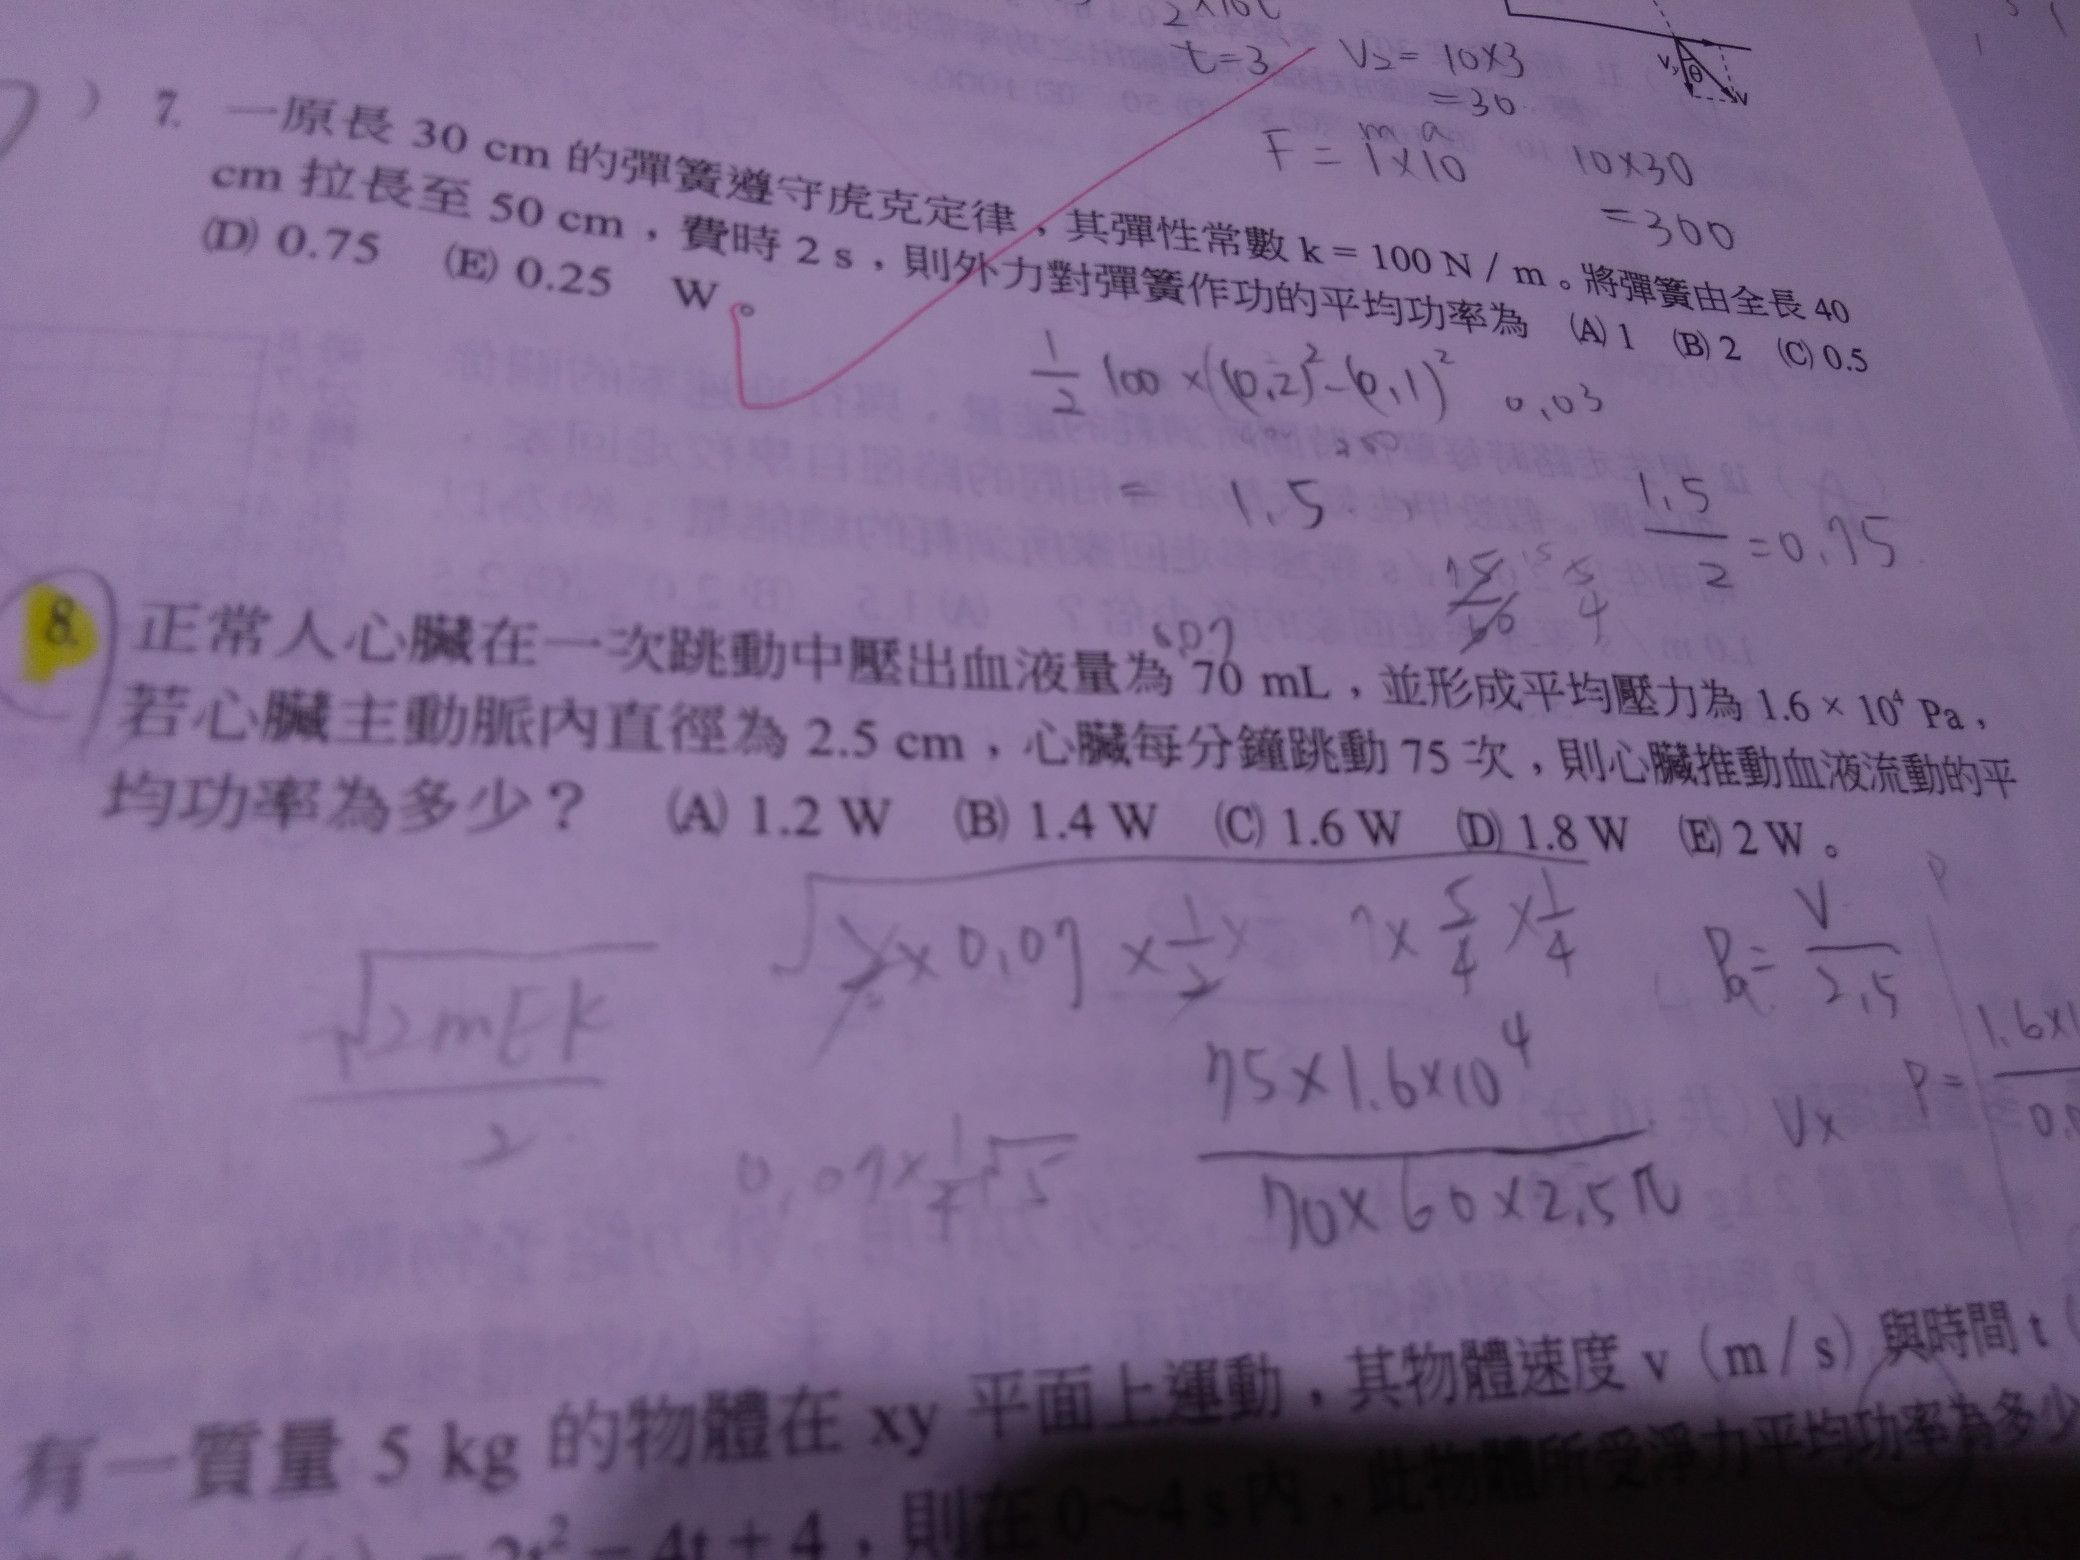 t=3 V₂= 10×3
=30
F = 1×10 10×30
m a
=300
7. 一原長 30 cm 的彈簧遵守虎克定律，其彈性常數 k = 100 N / m。將彈簧由全長 40
cm 拉長至 50 cm，費時 2 s，則外力對彈簧作功的平均功率為 (A) 1 (B) 2 (C) 0.5
(D) 0.75 (E) 0.25 W。
1/2 100 ×((0.2)²-(0.1)² 0.03
= 1.5
1.5/2 =0.75
5/4
8. 正常人心臟在一次跳動中壓出血液量為 70 mL，並形成平均壓力為 1.6 × 10⁴ Pa，
若心臟主動脈內直徑為 2.5 cm，心臟每分鐘跳動 75 次，則心臟推動血液流動的平
均功率為多少？ (A) 1.2 W (B) 1.4 W (C) 1.6 W (D) 1.8 W (E) 2 W。
√2mEk/2
×0.07 ×1/2 7× 5/4 ×1/4
Pa= V/2.5
75×1.6×10⁴/70×60×2.5π
0.07×1/4√5
V×
P= 1.6×1
有一質量 5 kg 的物體在 xy 平面上運動，其物體速度 v（m / s）與時間 t
= 2t² − 4t + 4，則在 0～4 s 內，此物體所受淨力平均功率為多少